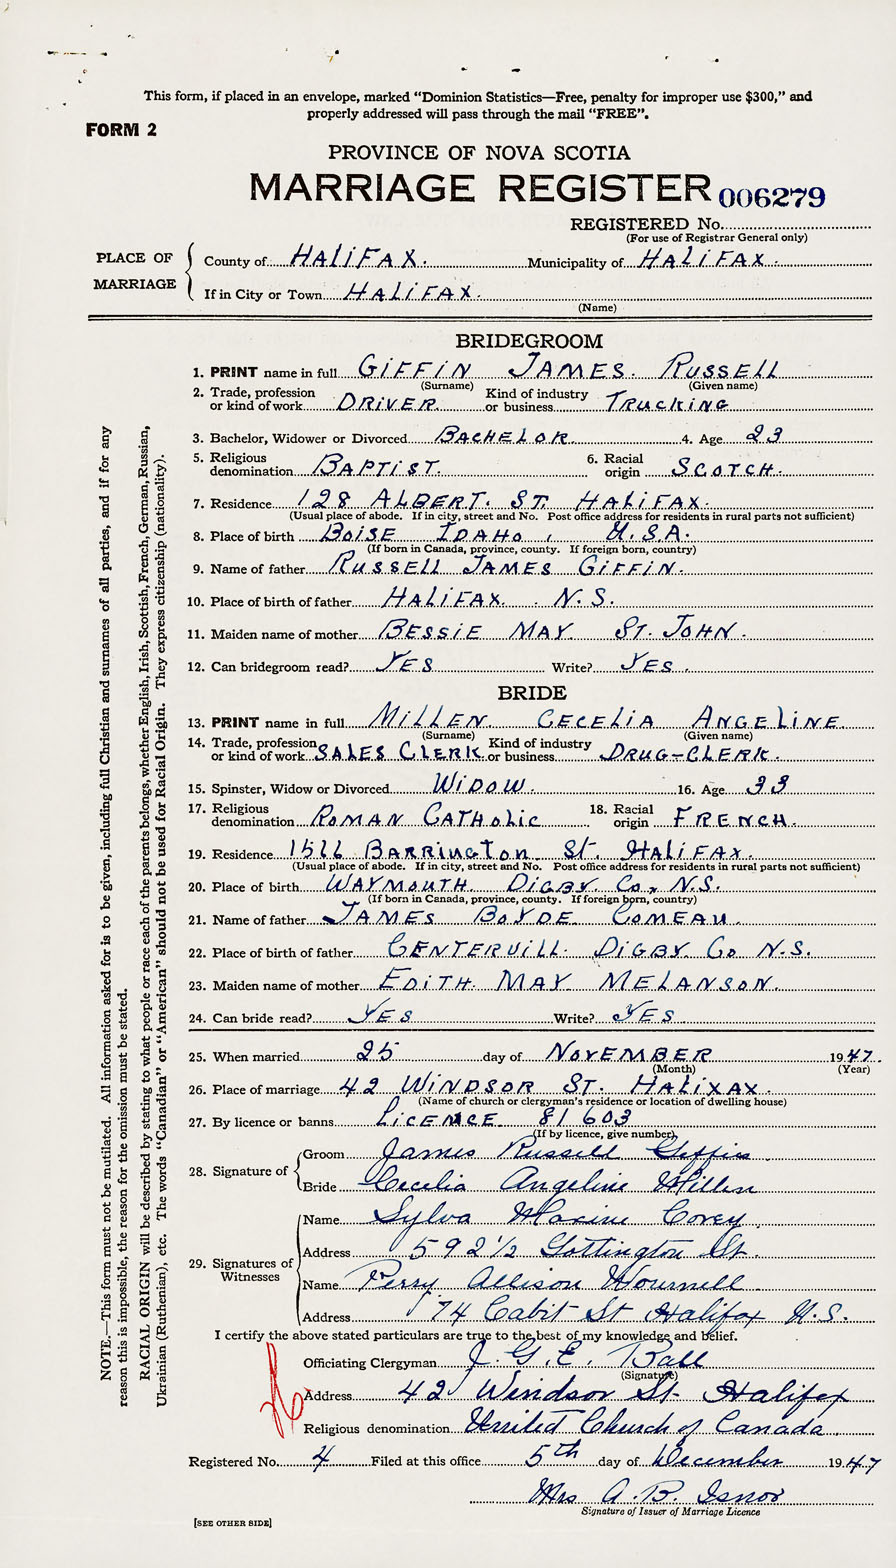 This form, if placed in an envelope, marked “Dominion Statistics—Free, penalty for improper use $300,” and
properly addressed will pass through the mail “FREE”.
FORM 2
PROVINCE OF NOVA SCOTIA
MARRIAGE REGISTER 006279
REGISTERED No.
(For use of Registrar General only)
PLACE OF MARRIAGE
County of HALIFAX. Municipality of HALIFAX.
If in City or Town HALIFAX.
(Name)
BRIDEGROOM
1. PRINT name in full GIFFIN JAMES. RUSSELL
(Surname) (Given name)
2. Trade, profession or kind of work DRIVER. Kind of industry or business TRUCKING
3. Bachelor, Widower or Divorced BACHELOR. 4. Age 23
5. Religious denomination BAPTIST. 6. Racial origin SCOTCH.
7. Residence 128 ALBERT. ST. HALIFAX.
(Usual place of abode. If in city, street and No. Post office address for residents in rural parts not sufficient)
8. Place of birth BOISE IDAHO, U.S.A.
(If born in Canada, province, county. If foreign born, country)
9. Name of father RUSSELL JAMES GIFFIN.
10. Place of birth of father HALIFAX. N.S.
11. Maiden name of mother BESSIE MAY ST. JOHN.
12. Can bridegroom read? YES Write? YES.
BRIDE
13. PRINT name in full MILLEN CECELIA ANGELINE
(Surname) (Given name)
14. Trade, profession or kind of work SALES CLERK. Kind of industry or business DRUG-CLERK.
15. Spinster, Widow or Divorced WIDOW. 16. Age 33
17. Religious denomination ROMAN CATHOLIC 18. Racial origin FRENCH.
19. Residence BARRINGTON St. HALIFAX.
(Usual place of abode. If in city, street and No. Post office address for residents in rural parts not sufficient)
20. Place of birth WAYMOUTH DIGBY Co, N.S.
(If born in Canada, province, county. If foreign born, country)
21. Name of father JAMES BOYDE COMEAU.
22. Place of birth of father CENTERVILL. DIGBY Co N.S.
23. Maiden name of mother EDITH MAY MELANSON.
24. Can bride read? YES Write? YES.
25. When married 25 day of NOVEMBER 1947.
(Month) (Year)
26. Place of marriage 42 WINDSOR ST. HALIXAX.
(Name of church or clergyman's residence or location of dwelling house)
27. By licence or banns LICENCE 81603
(If by licence, give number)
28. Signature of
Groom James Russell Giffin.
Bride Cecelia Angeline Millen
29. Signatures of Witnesses
Name Sylva Maxine Corey.
Address 592½ Gottington St.
Name Perry Allison
Address 74 Cabit St Halifax N.S.
I certify the above stated particulars are true to the best of my knowledge and belief.
Officiating Clergyman J. G. E. Ball
(Signature)
Address 42 Windsor St. Halifax
Religious denomination United Church of Canada.
Registered No. 4 Filed at this office 5th day of December 1947
Mrs A. B. Isnor
Signature of Issuer of Marriage Licence
[SEE OTHER SIDE]
NOTE.—This form must not be mutilated. All information asked for is to be given, including full Christian and surnames of all parties, and if for any
reason this is impossible, the reason for the omission must be stated.
RACIAL ORIGIN will be described by stating to what people or race each of the parents belongs, whether English, Irish, Scottish, French, German, Russian,
Ukrainian (Ruthenian), etc. The words “Canadian” or “American” should not be used for Racial Origin. They express citizenship (nationality).